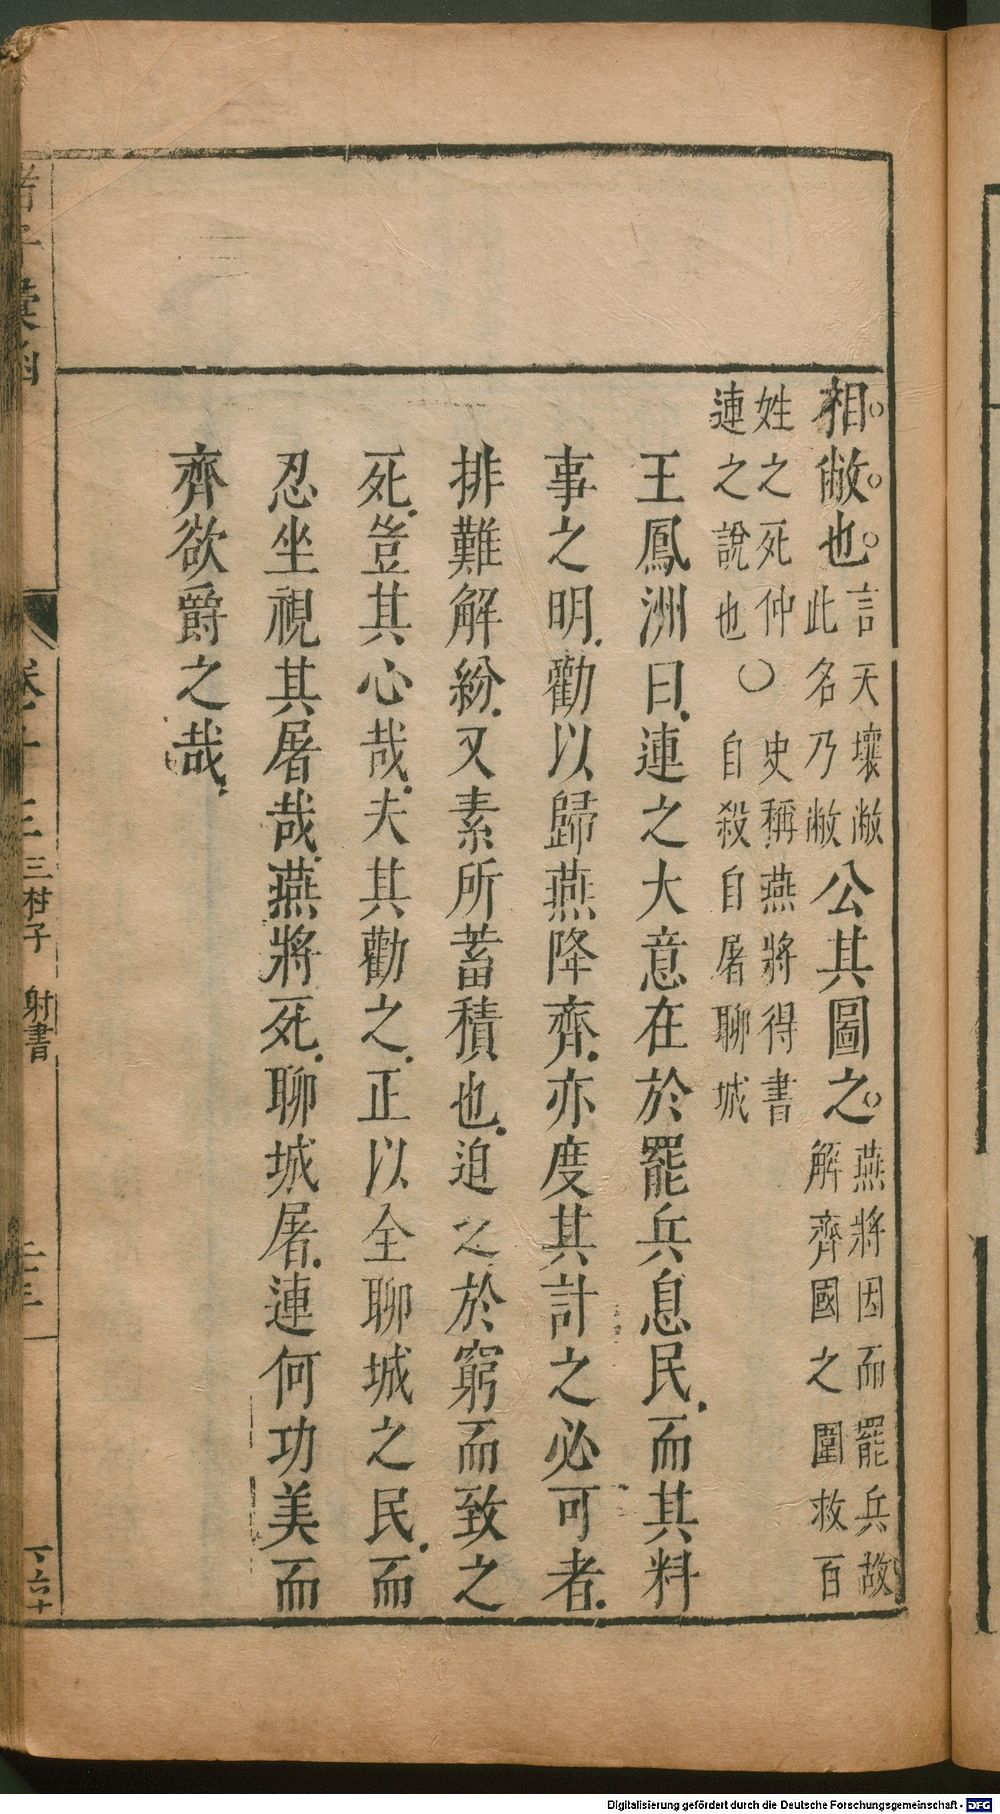 相敝也言天壤敝此名乃敝公其圖之燕將因而罷兵故解齊國之圍救百
姓之死仲連之說也〇史稱燕將得書自殺自屠聊城
王鳳洲曰連之大意在於罷兵息民而其料
事之明勸以歸燕降齊亦度其計之必可者
排難解紛又素所蓄積也迫之於窮而致之
死豈其心哉夫其勸之正以全聊城之民而
忍坐視其屠哉燕將死聊城屠連何功美而
齊欲爵之哉
三柱子 射書
Digitalisierung gefördert durch die Deutsche Forschungsgemeinschaft - DFG